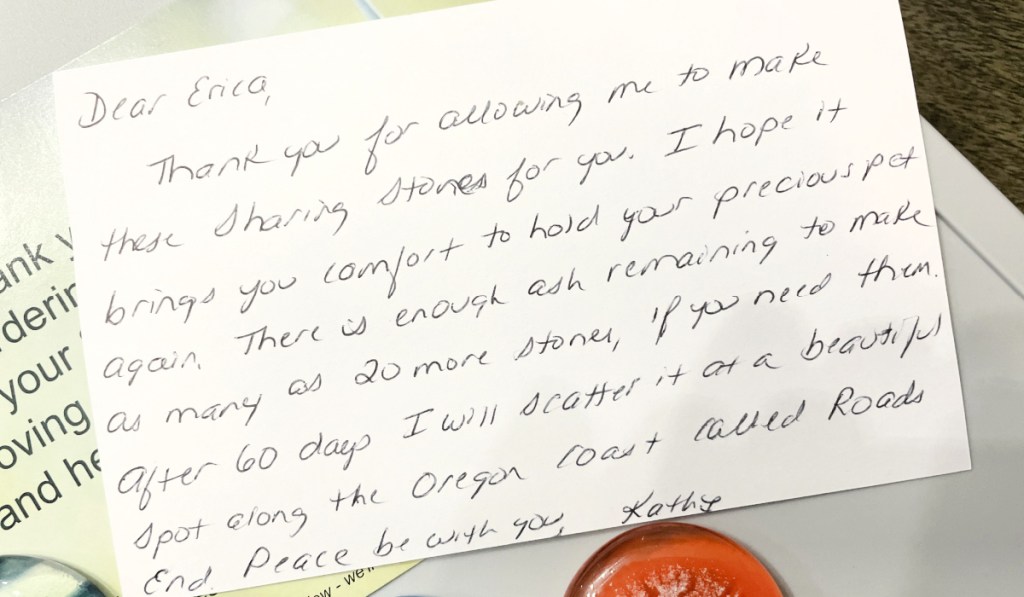 Dear Erica,
Thank you for allowing me to make
these sharing stones for you. I hope it
brings you comfort to hold your precious pet
again. There is enough ash remaining to make
as many as 20 more stones, if you need them.
After 60 days I will scatter it at a beautiful
spot along the Oregon coast called Roads
End. Peace be with you, Kathy
ank y
derin
your
oving
and he
ow - we'